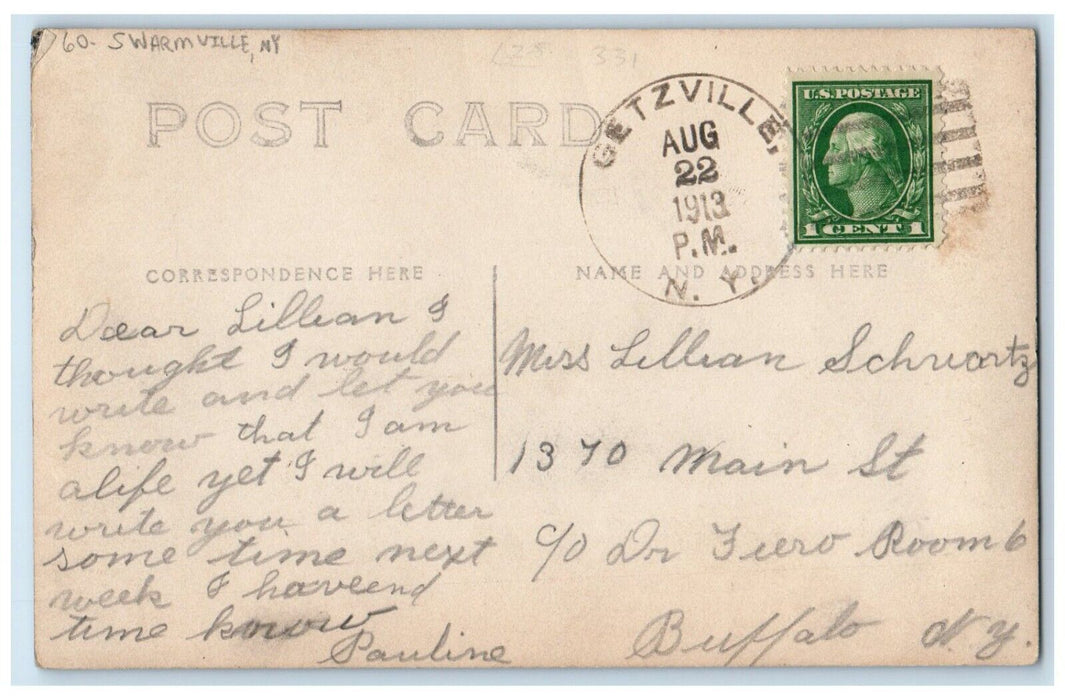 60- SWARMVILLE, NY
331
POST CARD
GETZVILLE,
AUG
22
1913
P.M.
N. Y.
U.S. POSTAGE
1 CENT 1
CORRESPONDENCE HERE
Dear Lillian I
thought I would
write and let you
know that I am
alife yet I will
write you a letter
some time next
week I haveend
time know
Pauline
NAME AND ADDRESS HERE
Miss Lillian Schwartz
1370 Main St
c/o Dr Fiero Room 6
Buffalo N.Y.